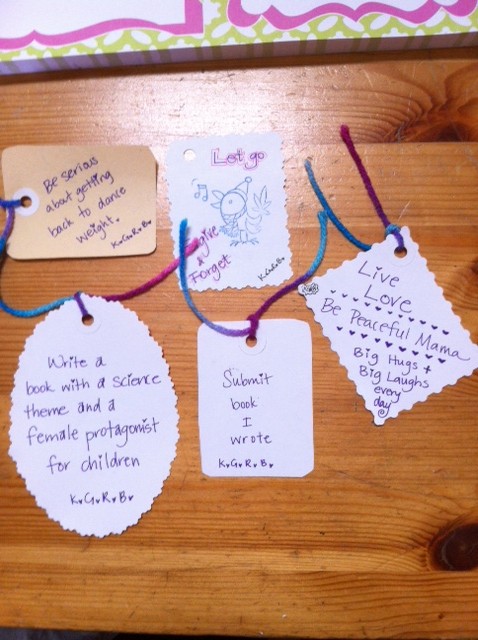 Be serious
about getting
back to dance
weight.
K♥G♥R♥B♥
Let go
give
&
Forget
K♥G♥R♥B♥
Live
Love
Be Peaceful Mama
Big Hugs +
Big Laughs
every
day
Write a
book with a science
theme and a
female protagonist
for children
K♥G♥R♥B♥
Submit
book
I
wrote
K♥G♥R♥B♥